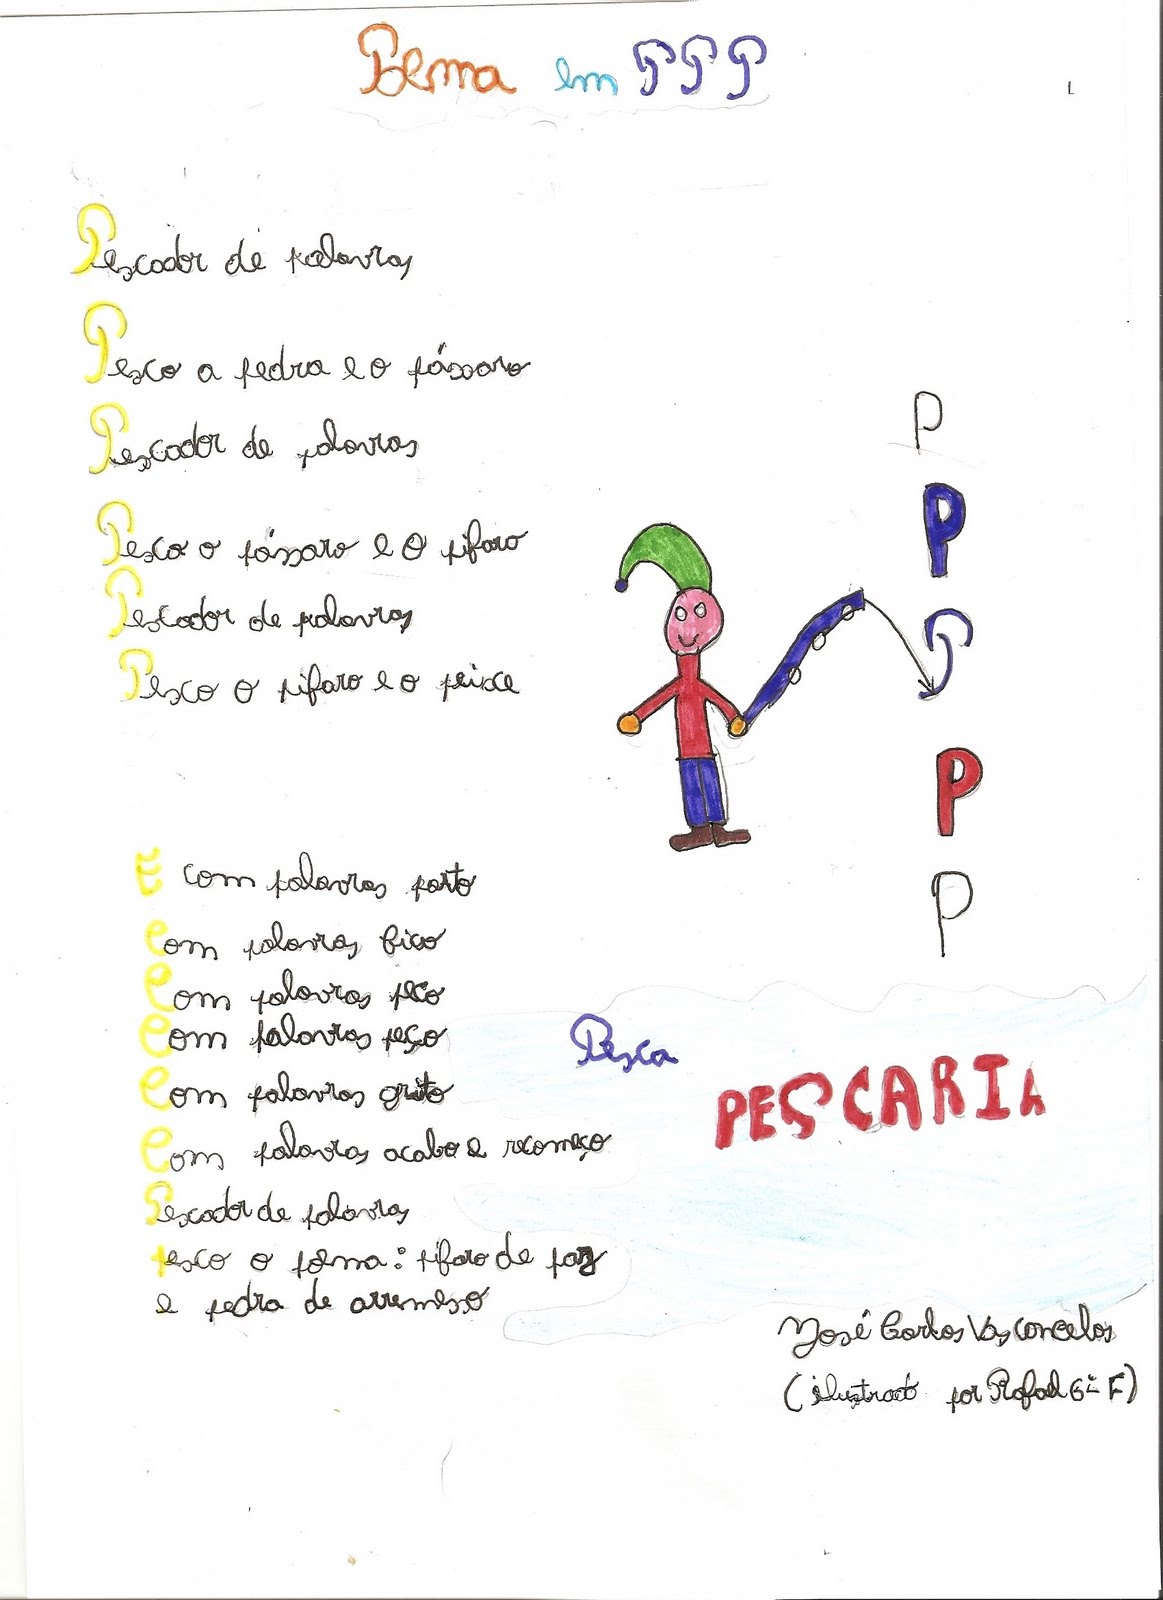 Poema em PPP
Pescador de palavras
Pesco a pedra e o pássaro
Pescador de palavras
Pesco o pássaro e o pífaro
Pescador de palavras
Pesco o pífaro e o peixe
P
P
P
P
P
E com palavras parto
Com palavras fico
Com palavras peco
Com palavras peço
Com palavras grito
Com palavras acabo e recomeço
Pescador de palavras
pesco o poema: pífaro de paz
e pedra de arremesso
Pesca
PESCARIA
José Carlos Vasconcelos
(ilustrado por Rafael 6º F)